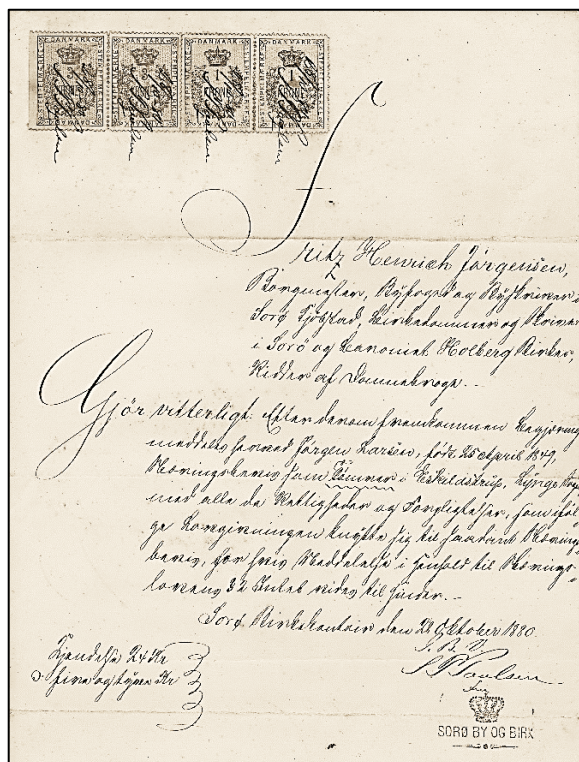 DANMARK DANMARK DANMARK DANMARK
1 KRONE 1 KRONE 1 KRONE 1 KRONE
Fritz Henrich Jörgensen,
Borgmester, Byfoged og Byskriver i
Sorø Kjöbstad, Birkedommer og Skriver
i Sorø og Baroniet Holberg Birker,
Ridder af Dannebroge.
Gjör vitterligt: Efter derom fremkommen Begjæring
meddeles herved Jörgen Larsen, født 25 April 1849,
Næringsbevis som Tömrer i Eskildstrup, Lynge
med alle de Rettigheder og Forpligtelser, som iföl-
ge Lovgivningen knytte sig til saadant Nærings-
bevis, for hvis Meddelelse i Henhold til Nærings-
lovens Intet vides til Hinder.
Sorø Birkekontoir den Oktober 1880.
Paulsen
Kjendelse 24 Kr
fire og tyve Kr
SORØ BY OG BIRK